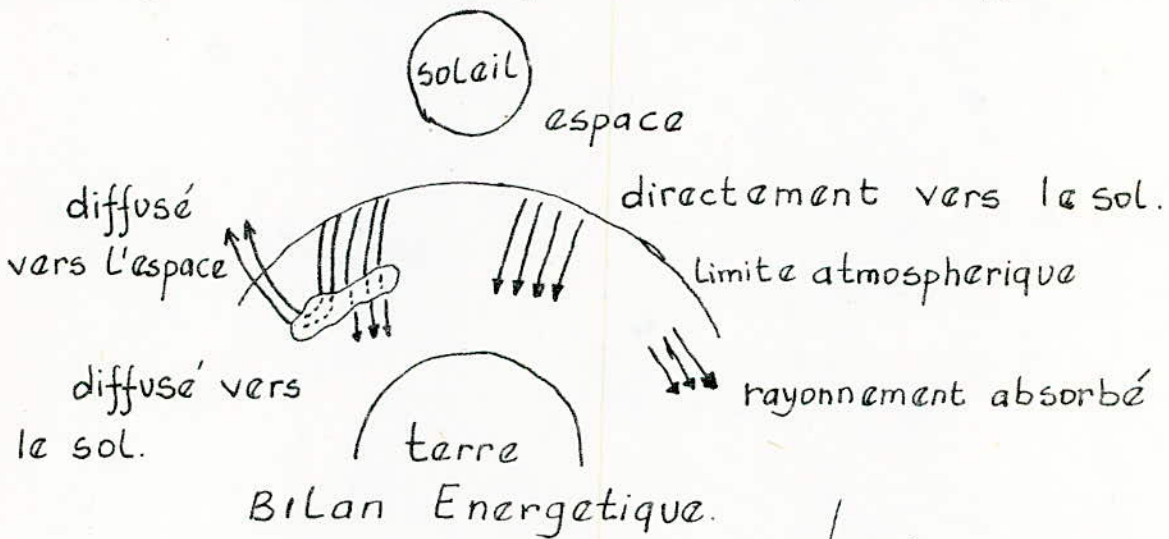 soleil
espace
diffusé
vers L'espace
directement vers le sol.
Limite atmospherique
diffusé vers
le sol.
rayonnement absorbé
terre
Bilan Energetique.